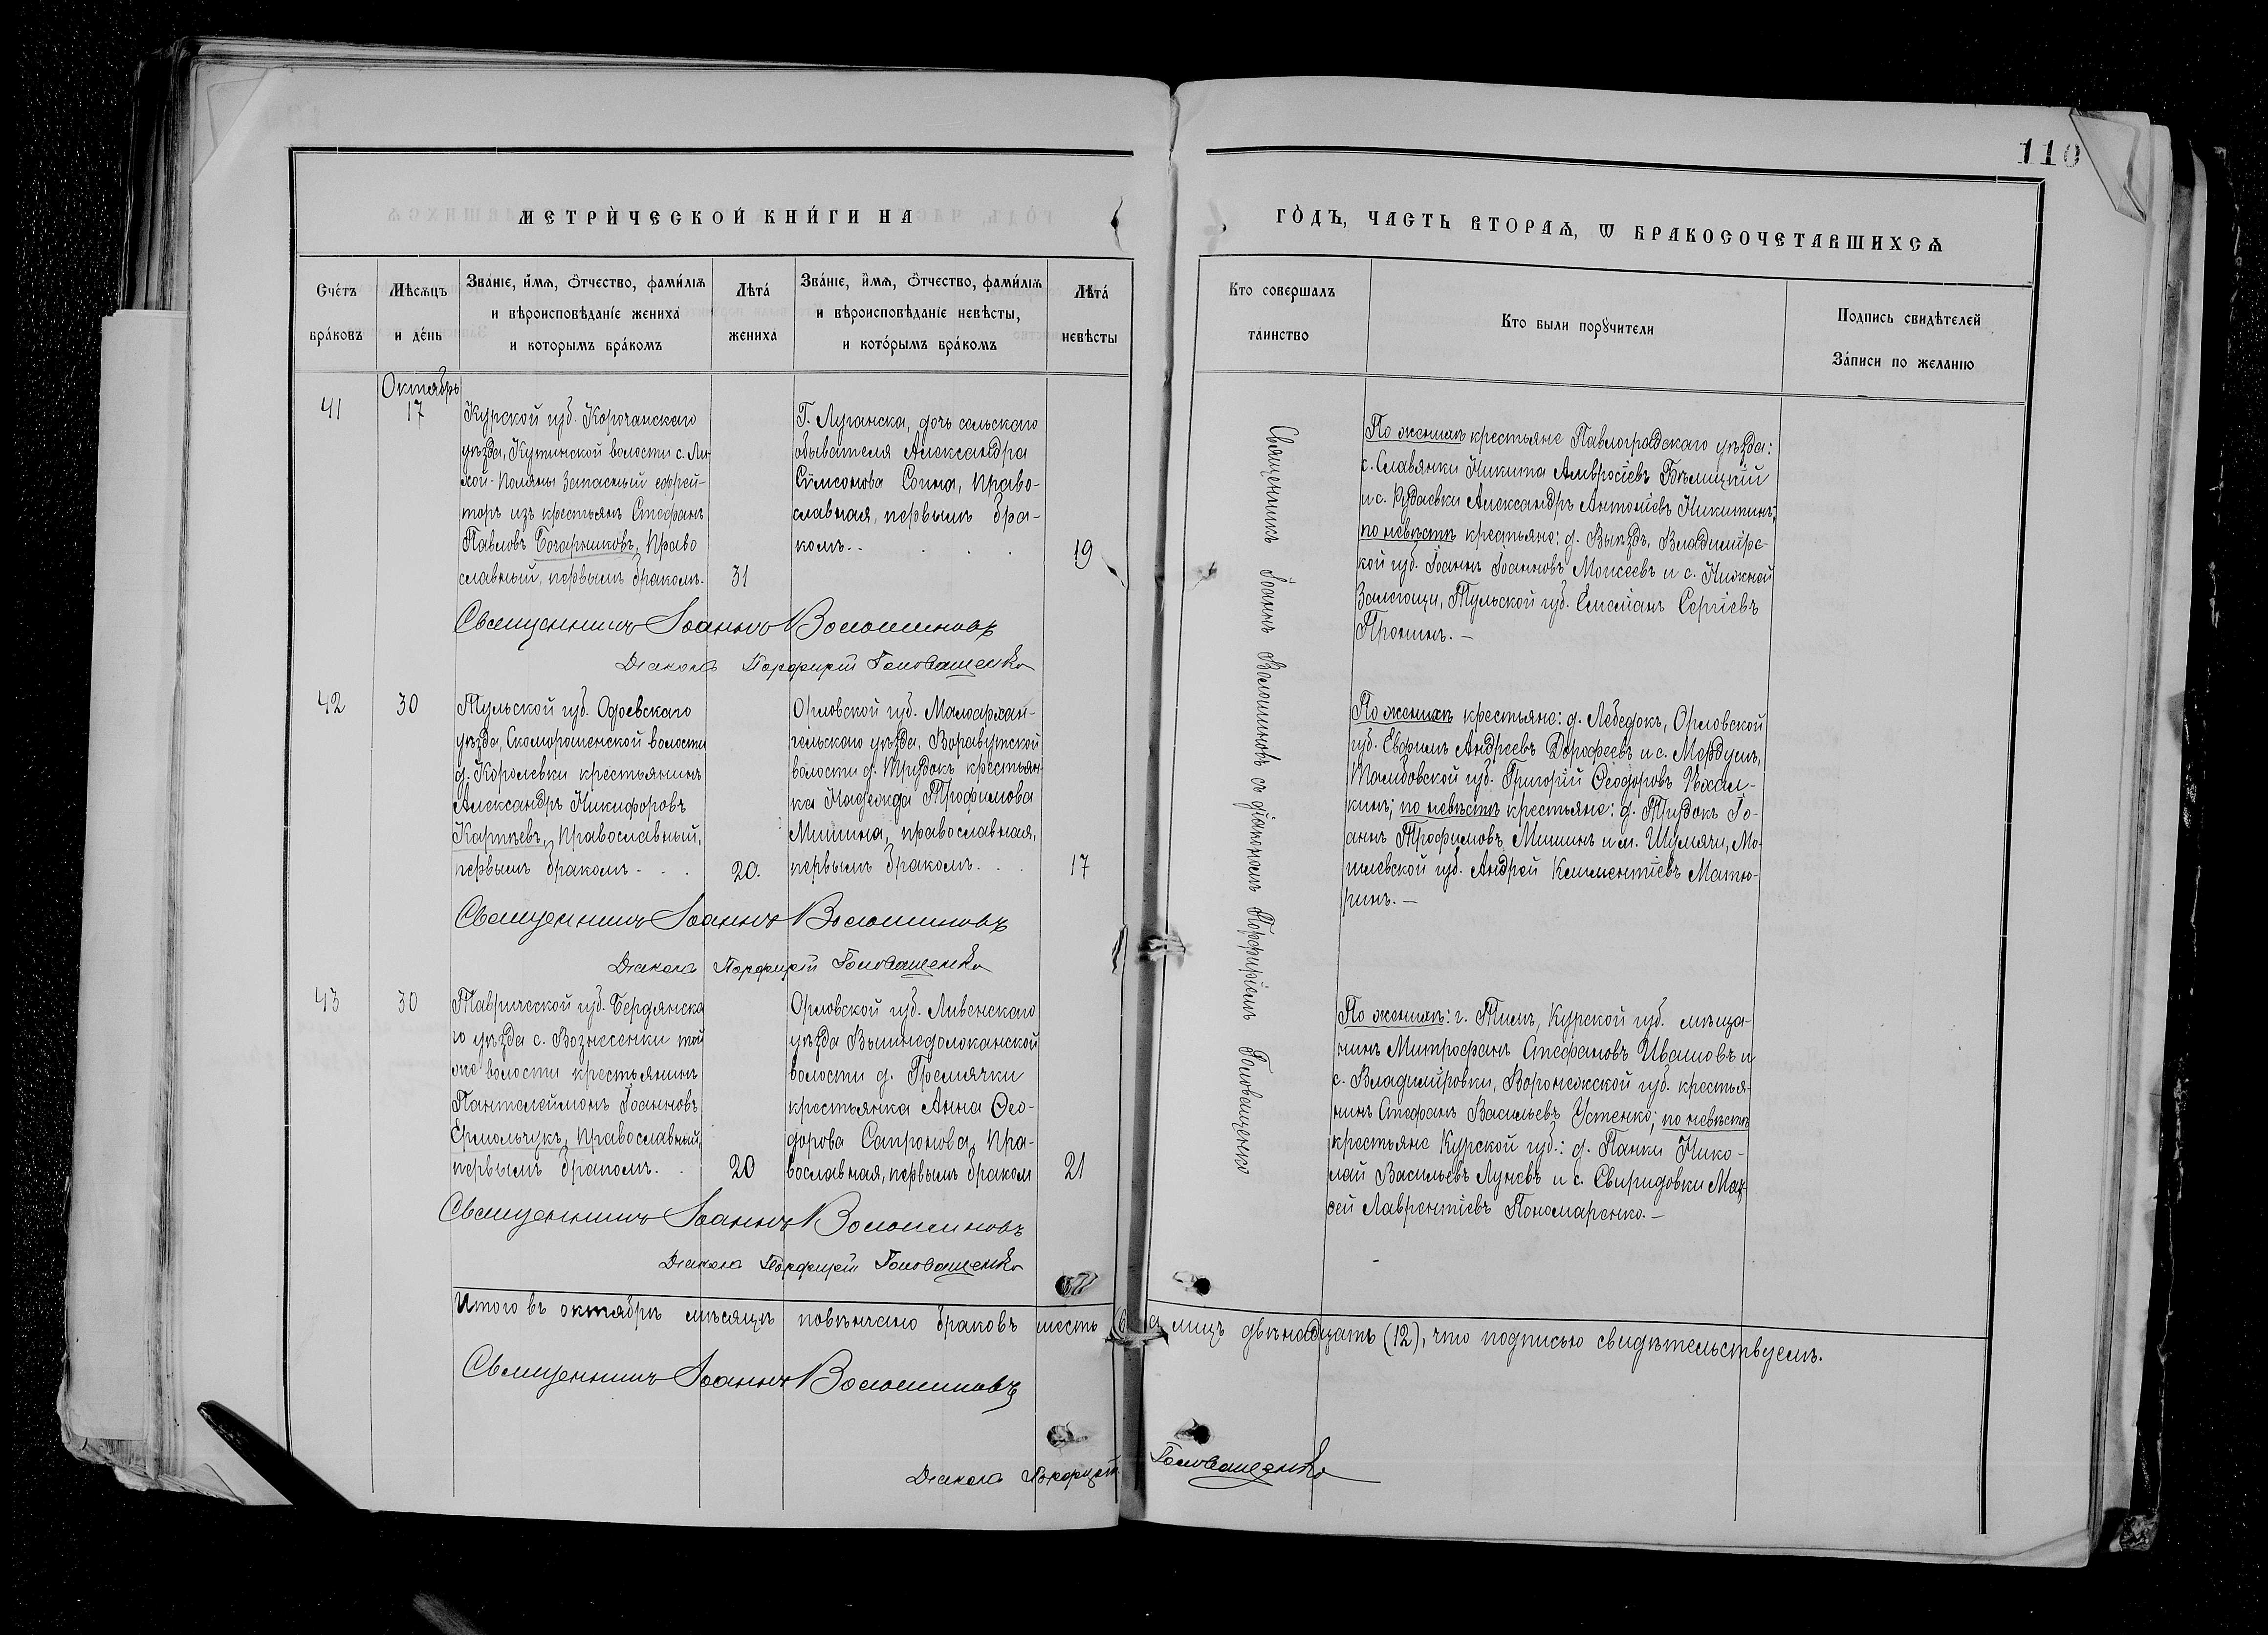 110
МЕТРИ́ЧЕСКОЙ КНИ́ГИ НА
ГО́ДЪ, ЧАСТЬ ВТОРАѦ, Ѡ БРАКОСОЧЕТАВШИХСѦ
Сче́тъ
бра́ковъ
Мѣсѧцъ
и де́нь
Зва́нїе, и́мѧ, ѻ́тчество, фами́лїѧ
и вѣроисповѣ́данїе жениха̀
и которымъ бра́комъ
Лѣта́
жениха
Зва́нїе, и́мѧ, ѻ́тчество, фами́лїѧ
и вѣроисповѣ́данїе невѣ́сты,
и кото́рымъ бра́комъ
Лѣта́
невѣсты
Кто совершалъ
таинство
Кто были порꙋчители
Подпись свидѣтелей
За́писи по желанію
Октябрь
41
17
Курской губ. Корочанскаго
уѣзда, Кутинской волости с. Ли
хой-Поляны запасный ефрей-
торъ изъ крестьянъ Стефанъ
Павловъ Бочарниковъ, право
славный, первымъ бракомъ.
31
Г. Луганска, дочь сельскаго
обывателя Александра
Сѵмеонова Сонна, право-
славная, первымъ бра-
комъ. . . . .
19
Священникъ Іоаннъ Волошиновъ
Діаконъ Порфирій Головащенко
Священникъ Іоаннъ Волошиновъ съ діакономъ Порфиріемъ Головащенко
По женихѣ крестьяне Павлоградскаго уѣзда:
с. Славянки Никита Амвросіевъ Бѣлицкій
и с. Рудаевки Александръ Антоніевъ Никитинъ;
по невѣстѣ крестьяне: д. Выѣздъ, Владимірс-
кой губ. Іоаннъ Іоанновъ Моисеевъ и с. Нижней
Залегощи, Тульской губ. Емеліанъ Сергіевъ
Пронинъ. —
42
30
Тульской губ. Одоевскаго
уѣзда, Скоморошенской волости
д. Королевки крестьянинъ
Александръ Никифоровъ
Карпѣевъ, православный,
первымъ бракомъ . . .
20.
Орловской губ. Малоархан-
гельскаго уѣзда, Воравутской
волости д. Трудокъ крестьян
ка Надежда Трофимова
Мишина, православная,
первымъ бракомъ. . .
17
Священникъ Іоаннъ Волошиновъ
Діаконъ Порфирій Головащенко
По женихѣ крестьяне: д. Лебедокъ, Орловской
губ. Евфимъ Андреевъ Дорофеевъ и с. Мордушъ,
Тамбовской губ. Григорій Ѳеодоровъ
кинъ; по невѣстѣ крестьяне: д. Трудокъ Іо-
аннъ Трофимовъ Мишинъ и м. Шумячи, Мо-
гилевской губ. Андрей Климентіевъ Матю-
ринъ. —
43
30
Таврической губ. Бердянска
го уѣзда с. Вознесенки той
же волости крестьянинъ
Пантелеймонъ Іоанновъ
Ермольчукъ, православный,
первымъ бракомъ. .
20
Орловской губ. Ливенскаго
уѣзда Вышнедолжанской
волости д. Гремячки
крестьянка Анна Ѳео-
дорова Сапронова, пра-
вославная, первымъ браком
21
Священникъ Іоаннъ Волошиновъ
Діаконъ Порфирій Головащенко
По женихѣ: г. Тимъ, Курской губ. мѣща-
нинъ Митрофанъ Стефановъ Ивашовъ и
с. Владиміровки, Воронежской губ. крестья-
нинъ Стефанъ Васильевъ Устенко; по невѣстѣ
крестьяне Курской губ.: д. Панки Нико-
лай Васильевъ Луневъ и с. Свиридовки Мак
сей Лаврентіевъ Пономаренко. —
Итого въ октябрѣ мѣсяцѣ повѣнчано браковъ шесть (6) а лицъ двѣнадцать (12), что подписью свидѣтельствуемъ.
Священникъ Іоаннъ Волошиновъ
Діаконъ Порфирій Головащенко